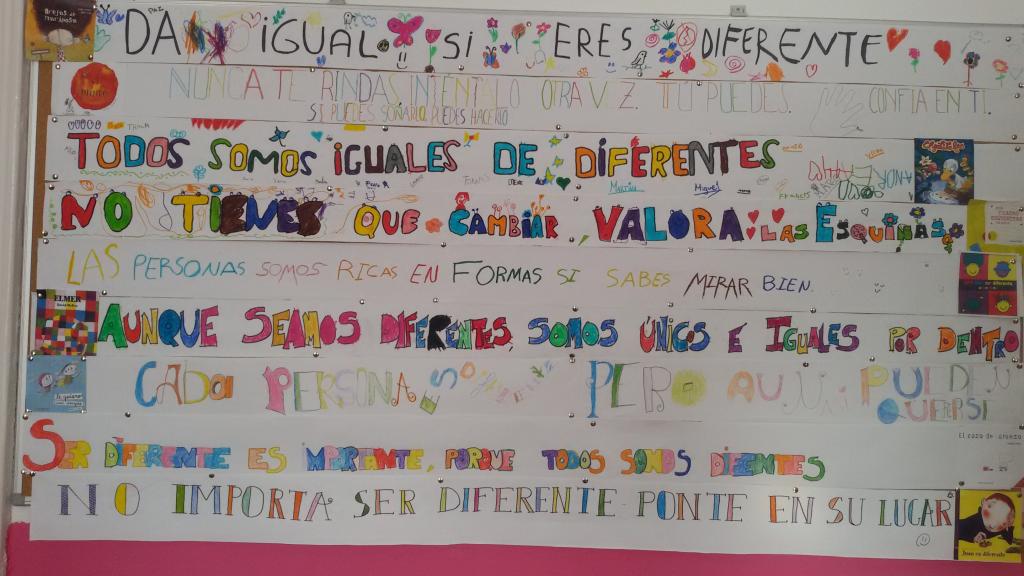 DA IGUAL SI ERES DIFERENTE
NUNCA TE RINDAS, INTÉNTALO OTRA VEZ. TÚ PUEDES. CONFIA EN TI.
SI PUEDES SOÑARLO, PUEDES HACERLO
TODOS SOMOS IGUALES DE DIFERENTES
Miguel
NO TIENES QUE CAMBIAR, VALORA LAS ESQUINAS
LAS PERSONAS SOMOS RICAS EN FORMAS SI SABES MIRAR BIEN.
ELMER
AUNQUE SEAMOS DIFERENTES, SOMOS ÚNICOS E IGUALES POR DENTRO
CADA PERSONA ES
PERO AUN PUEDEN
QUERERSE
El cazo de Lorenzo
SER DIFERENTE ES IMPORTANTE, PORQUE TODOS SOMOS DIFENTES
NO IMPORTA SER DIFERENTE PONTE EN SU LUGAR
Juan es diferente